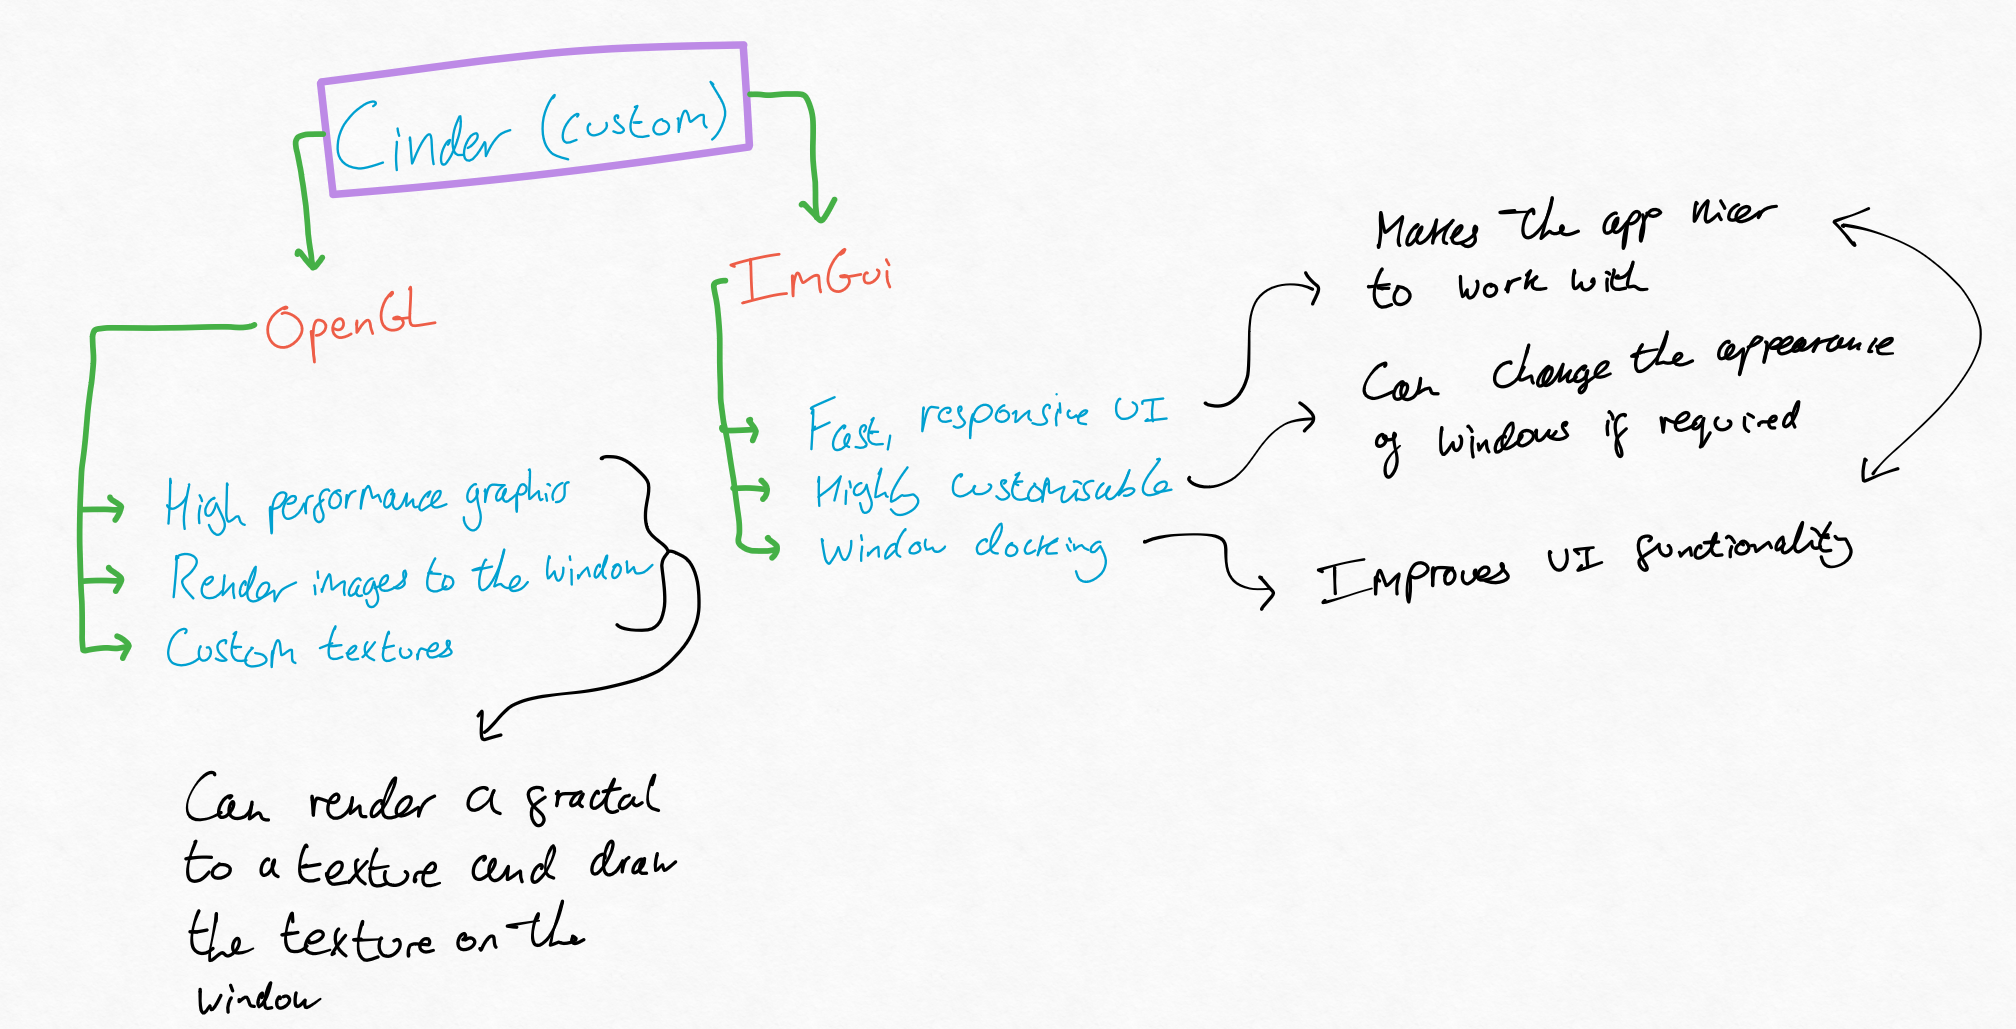 Cinder (custom)
OpenGL
High performance graphics
Render images to the window
Custom textures
Can render a fractal
to a texture and draw
the texture on the
window
ImGui
Fast, responsive UI
Highly customisable
Window docking
Makes the app nicer
to work with
Can change the appearance
of windows if required
Improves UI functionality